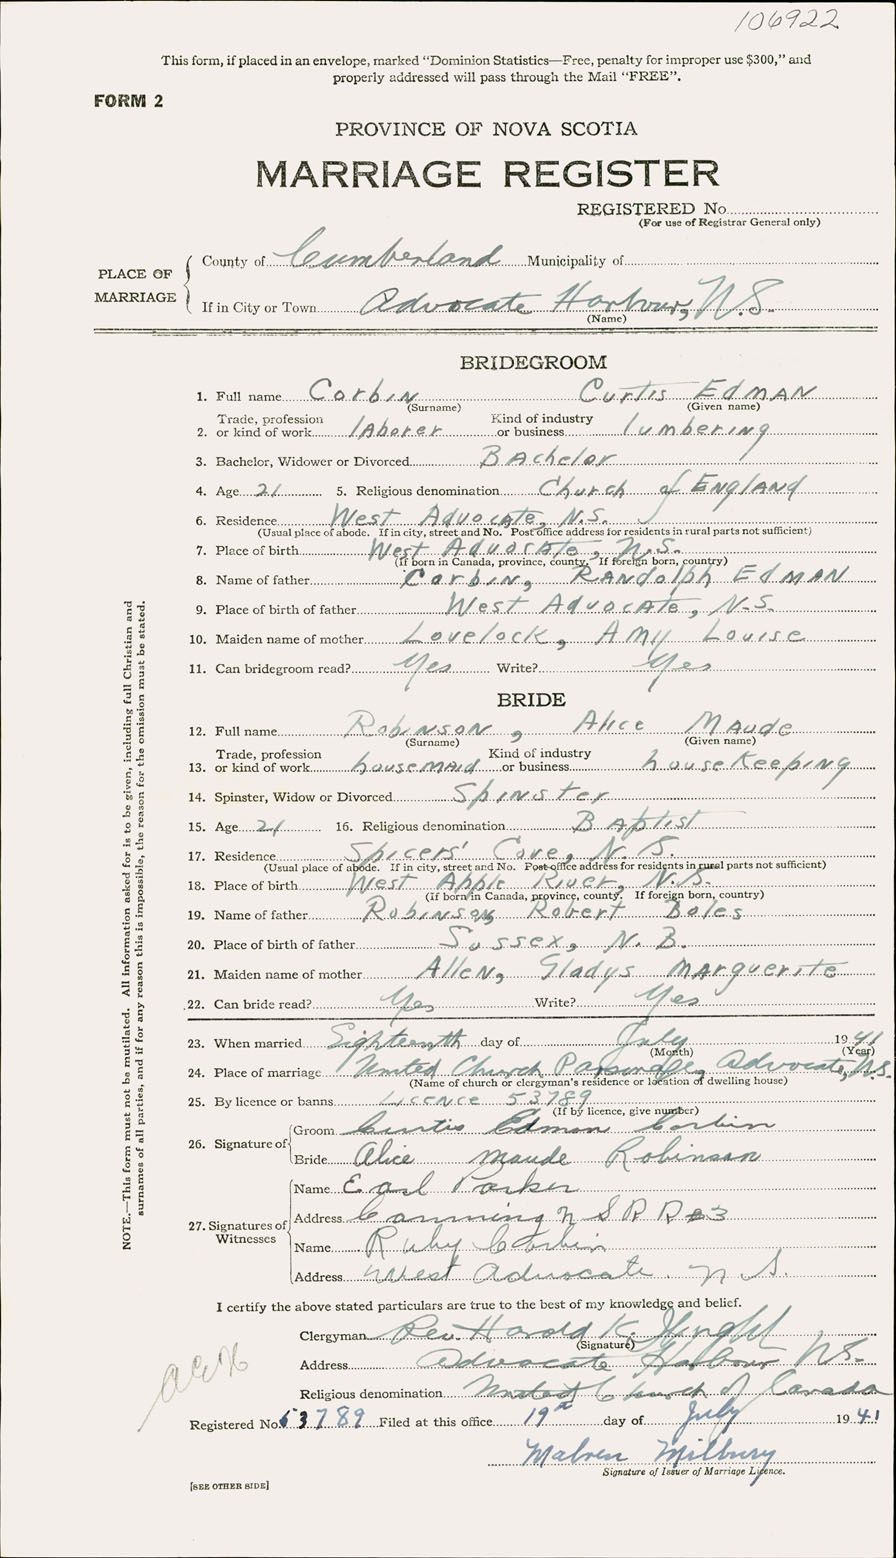 106922
This form, if placed in an envelope, marked “Dominion Statistics—Free, penalty for improper use $300,” and
properly addressed will pass through the Mail “FREE”.
FORM 2
PROVINCE OF NOVA SCOTIA
MARRIAGE REGISTER
REGISTERED No.
(For use of Registrar General only)
PLACE OF MARRIAGE
County of Cumberland Municipality of
If in City or Town Advocate Harbour, N.S.
(Name)
BRIDEGROOM
1. Full name Corbin Curtis Edman
(Surname) (Given name)
Trade, profession Kind of industry
2. or kind of work laborer or business lumbering
3. Bachelor, Widower or Divorced Bachelor
4. Age 21 5. Religious denomination Church of England
6. Residence West Advocate, N.S.
(Usual place of abode. If in city, street and No. Post office address for residents in rural parts not sufficient)
7. Place of birth West Advocate, N.S.
(If born in Canada, province, county. If foreign born, country)
8. Name of father Corbin, Randolph Edman
9. Place of birth of father West Advocate, N.S.
10. Maiden name of mother Lovelock, Amy Louise
11. Can bridegroom read? Yes Write? Yes
BRIDE
12. Full name Robinson, Alice Maude
(Surname) (Given name)
Trade, profession Kind of industry
13. or kind of work housemaid or business housekeeping
14. Spinster, Widow or Divorced Spinster
15. Age 21 16. Religious denomination Baptist
17. Residence Spicers' Cove, N.S.
(Usual place of abode. If in city, street and No. Post office address for residents in rural parts not sufficient)
18. Place of birth West Apple River, N.S.
(If born in Canada, province, county. If foreign born, country)
19. Name of father Robinson, Robert Boles
20. Place of birth of father Sussex, N.B.
21. Maiden name of mother Allen, Gladys Marguerite
22. Can bride read? Yes Write? Yes
23. When married Eighteenth day of July 1941
(Month) (Year)
24. Place of marriage United Church Parsonage, Advocate, N.S.
(Name of church or clergyman's residence or location of dwelling house)
25. By licence or banns Licence 53789
(If by licence, give number)
26. Signature of
Groom Curtis Edman Corbin
Bride Alice Maude Robinson
27. Signatures of Witnesses
Name Earl Parker
Address Canning N S R R #3
Name Ruby Corbin
Address West Advocate. N.S.
I certify the above stated particulars are true to the best of my knowledge and belief.
Clergyman Rev. Harold K.
(Signature)
Address Advocate Harbour N.S.
Religious denomination United Church of Canada
Registered No. 53789 Filed at this office 19th day of July 1941
Malven Milbury
Signature of Issuer of Marriage Licence.
[SEE OTHER SIDE]
NOTE.—This form must not be mutilated. All Information asked for is to be given, including full Christian and
surnames of all parties, and if for any reason this is impossible, the reason for the omission must be stated.